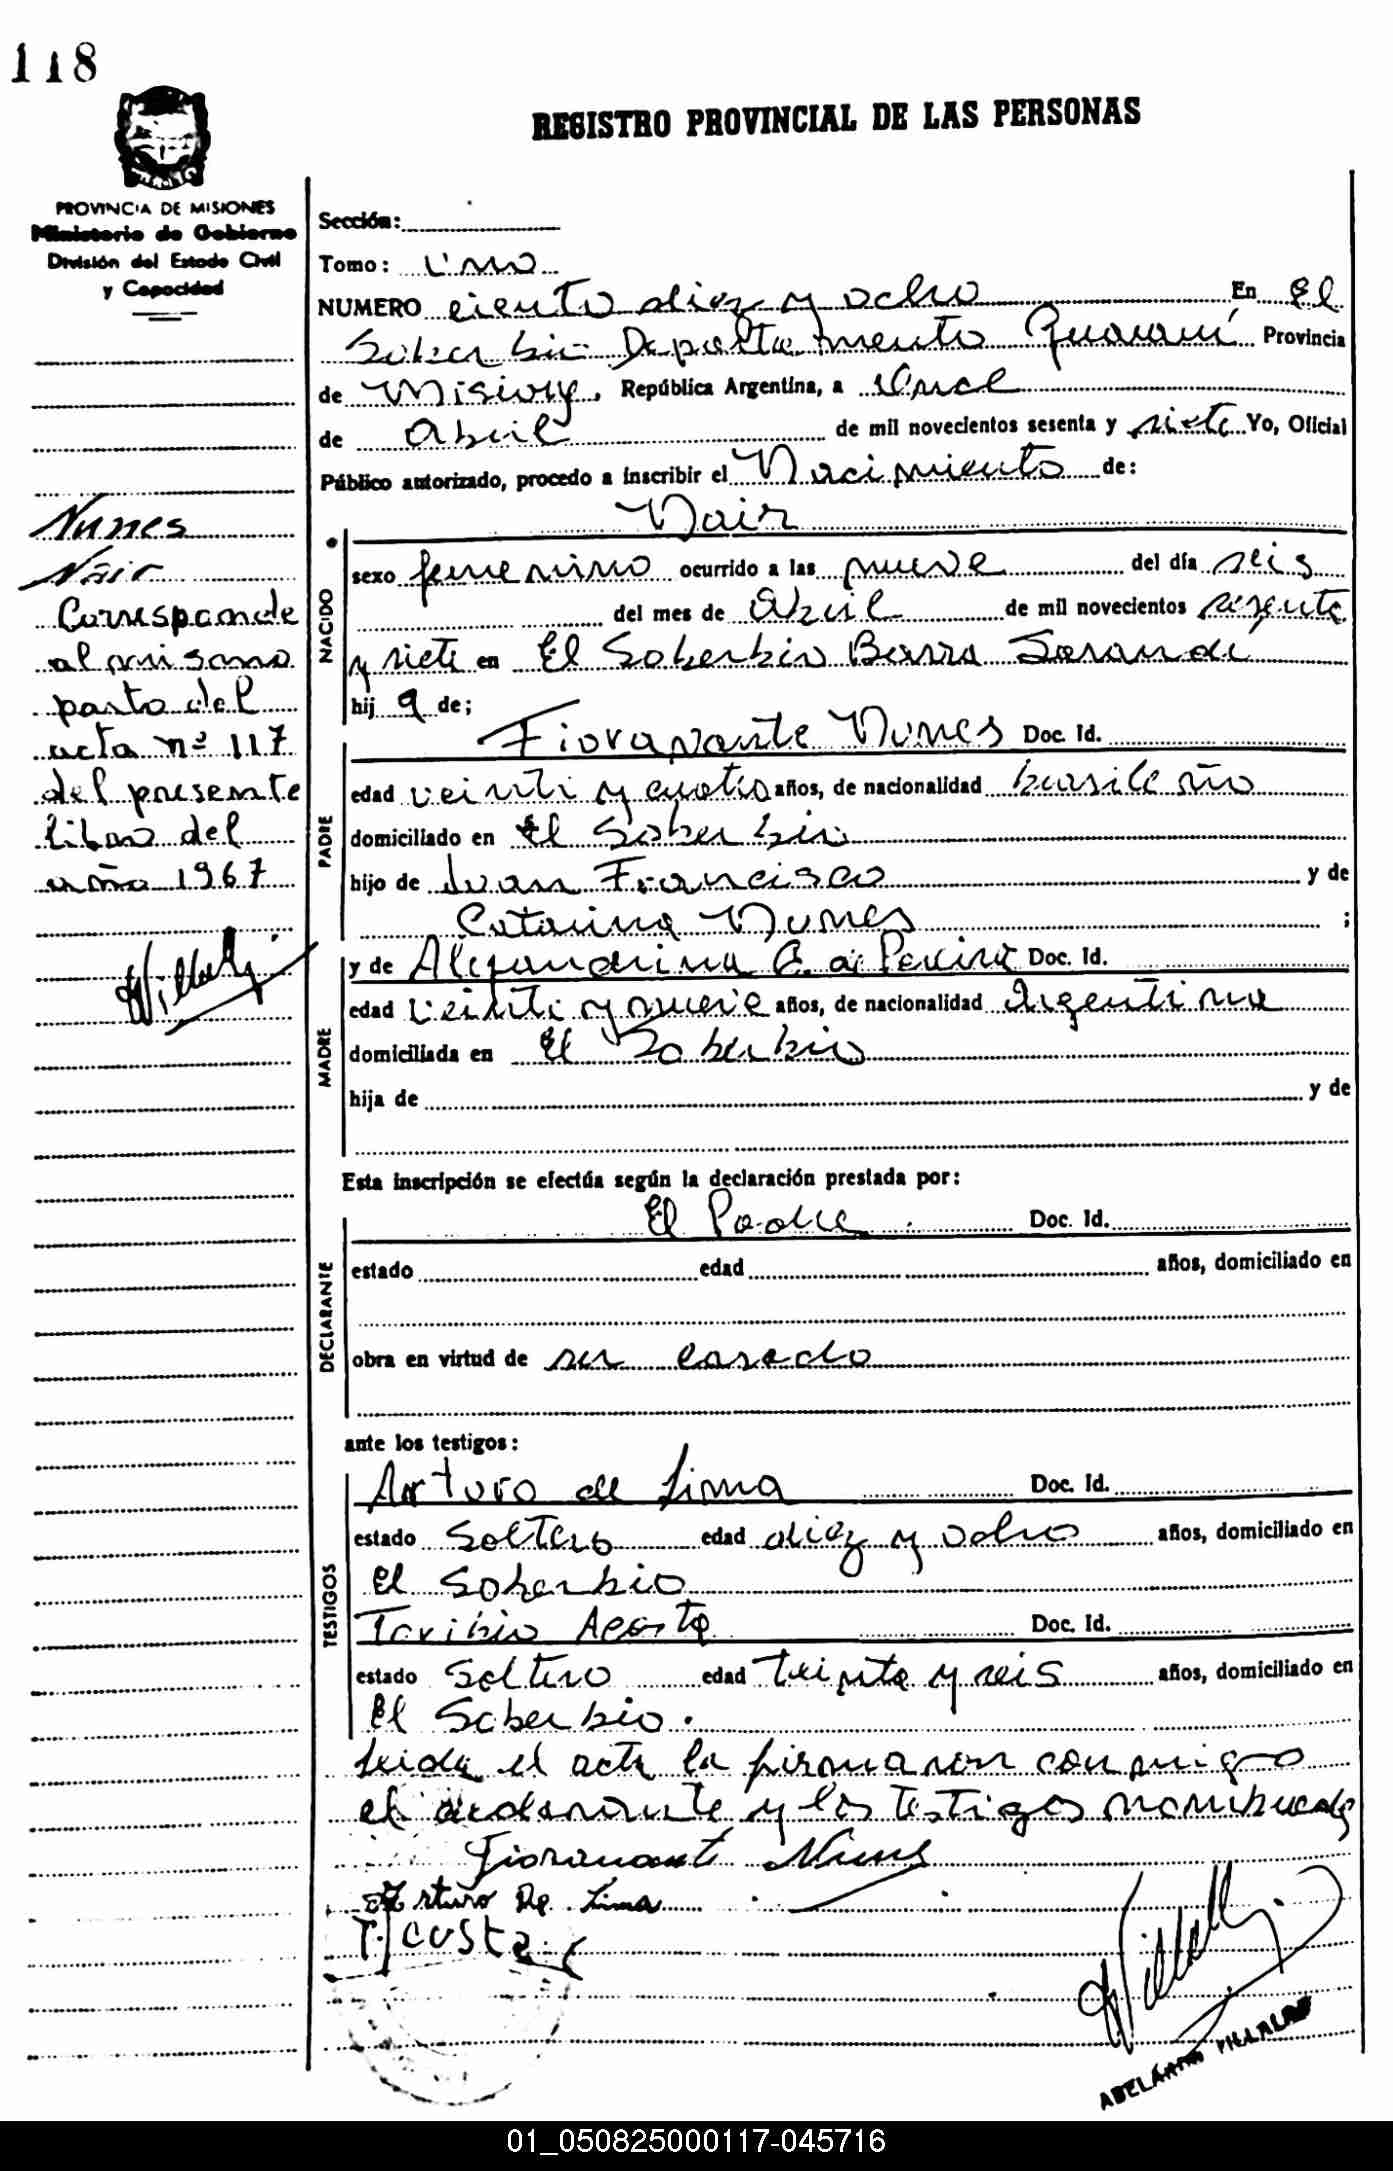 118
REGISTRO PROVINCIAL DE LAS PERSONAS
PROVINCIA DE MISIONES
Ministerio de Gobierno
División del Estado Civil
y Capacidad
Nunes
Nair
Corresponde
al mismo
parto del
acta nº 117
del presente
libro del
año 1967
Sección:
Tomo: Uno
NUMERO ciento diez y ocho En El
Soberbio Departamento Guaraní Provincia
de Misiones, República Argentina, a Once
de Abril de mil novecientos sesenta y siete Yo, Oficial
Público autorizado, procedo a inscribir el Nacimiento de:
Nair
NACIDO
sexo femenino ocurrido a las nueve del día seis
del mes de Abril de mil novecientos sesenta
y siete en El Soberbio Barra Sarandi
hij a de;
PADRE
Fioravante Nunes Doc. Id.
edad veinti y cuatro años, de nacionalidad brasileño
domiciliado en El Soberbio
hijo de Juan Francisco y de
Catarina Nunes ;
MADRE
y de Alejandrina C. de Pereira Doc. Id.
edad veinti y nueve años, de nacionalidad Argentina
domiciliada en El Soberbio
hija de y de
Esta inscripción se efectúa según la declaración prestada por:
DECLARANTE
El Padre Doc. Id.
estado edad años, domiciliado en
obra en virtud de ser casado
ante los testigos:
TESTIGOS
Arturo de Lima Doc. Id.
estado Soltero edad diez y ocho años, domiciliado en
El Soberbio
Toribio Acosta Doc. Id.
estado Soltero edad treinta y seis años, domiciliado en
El Soberbio.
Leida el acta la firmaron conmigo
el declarante y los testigos nombrados
Fioravante Nunes
Arturo De Lima
T. Acosta
ABELARDO VILLALBA
01_050825000117-045716